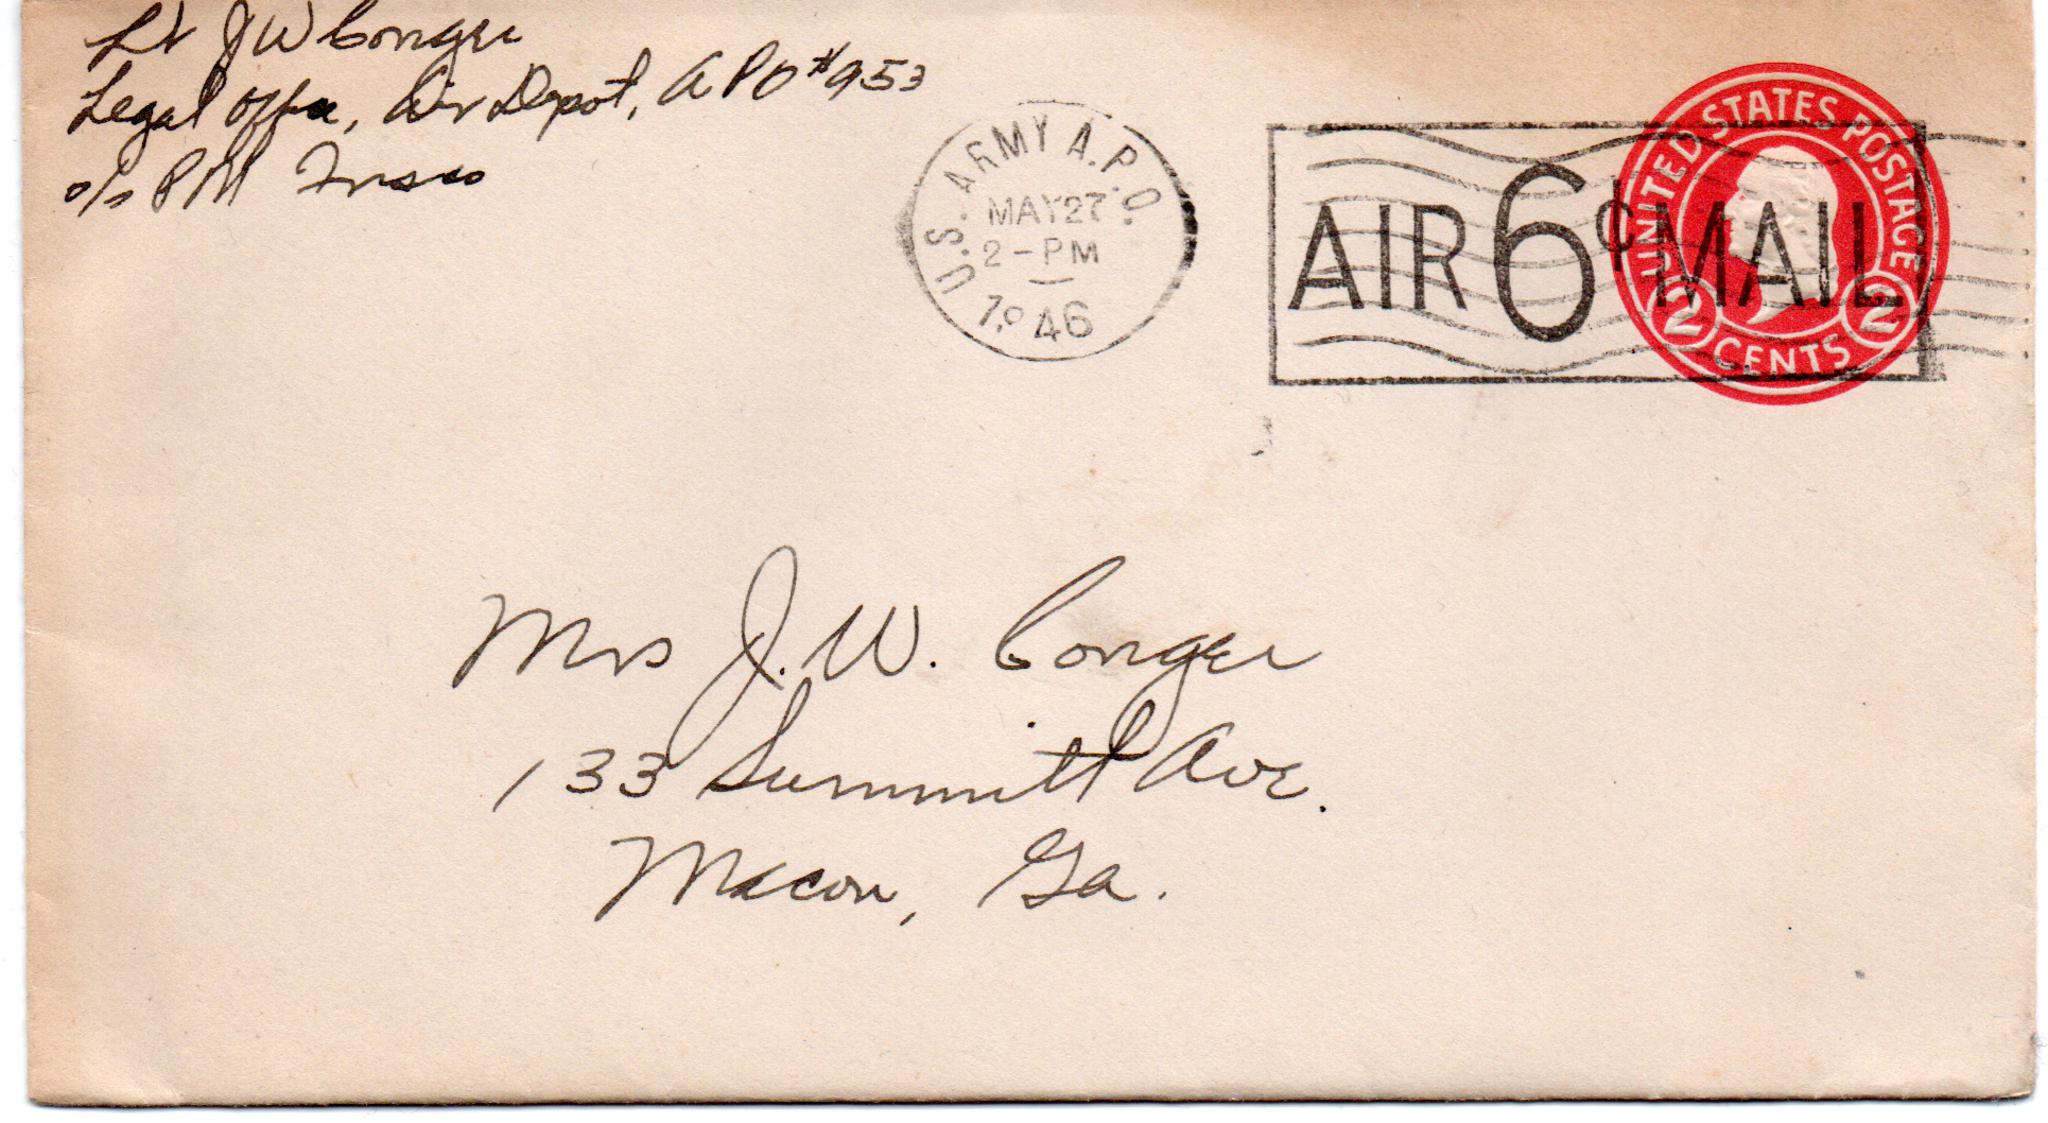 Lt JW Conger
Legal Office, Air Depot, APO #953
c/o PM Frisco
U.S. ARMY A.P.O.
MAY 27
2-PM
1946
AIR 6¢ MAIL
UNITED STATES POSTAGE
2 CENTS 2
Mrs J. W. Conger
133 Summitt Ave.
Macon, Ga.